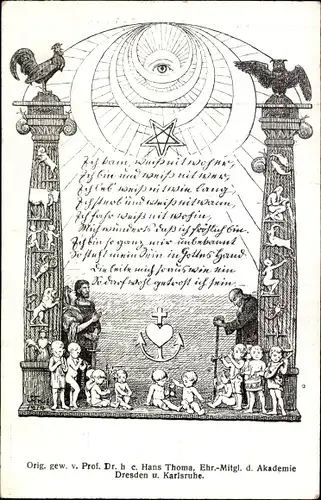 Ich kam, weiß nit woher,
Ich bin und weiß nit wer,
Ich leb, weiß nit wie lang,
Ich sterb und weiß nit wann,
Ich fahr weiß nit wohin,
Mich wunderts daß ich fröhlich bin.
Da mir mein Sein so unbekannt
So steht mein Sein in Gottes Hand
Die leite mich
So darf wohl getrost ich sein
Orig. gew. v. Prof. Dr. h c. Hans Thoma, Ehr.-Mitgl. d. Akademie
Dresden u. Karlsruhe.